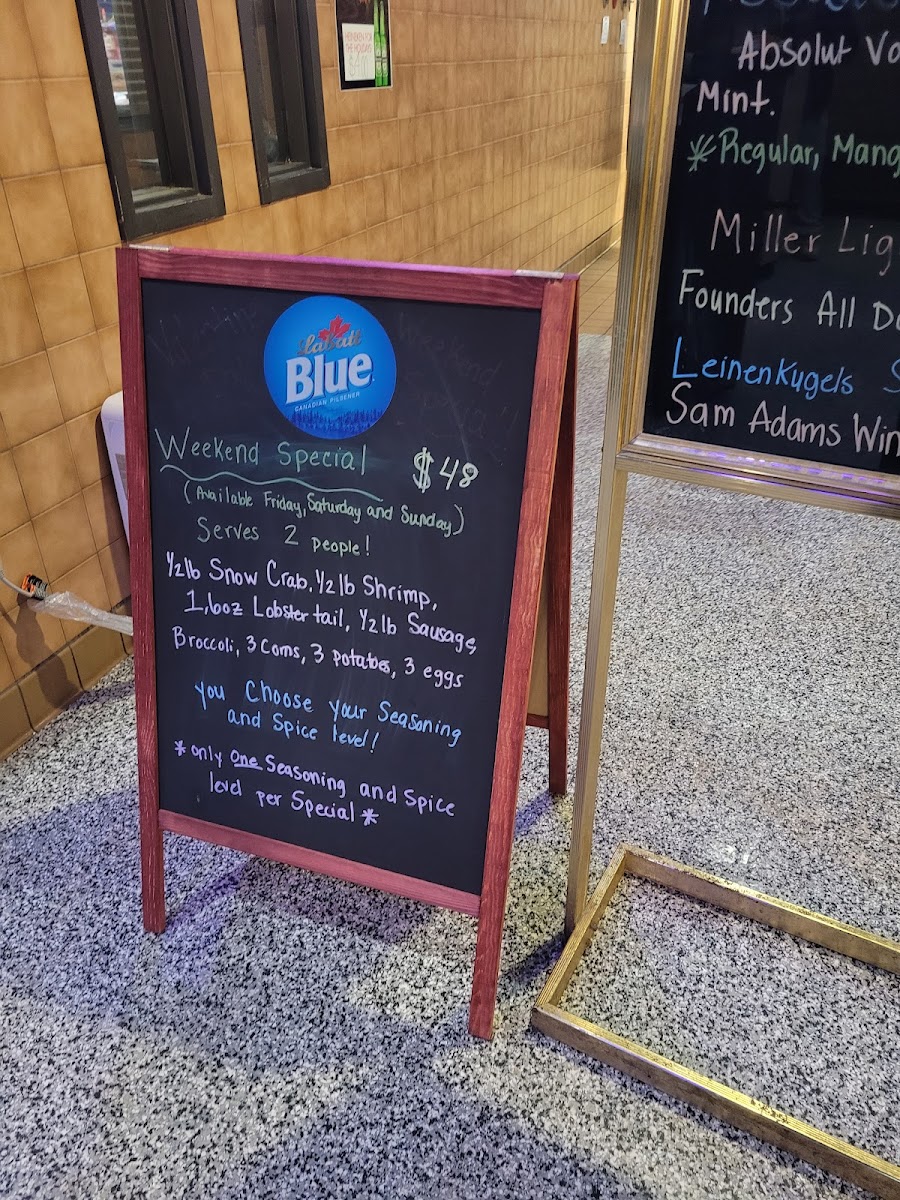 HEINEKEN FOR
THE HOLIDAYS
Labatt
Blue
CANADIAN PILSENER
Weekend Special $48
(Available Friday, Saturday and Sunday)
Serves 2 people!
1/2lb Snow Crab, 1/2lb Shrimp,
1,6oz Lobster tail, 1/2lb Sausage,
Broccoli, 3 corns, 3 potatoes, 3 eggs
you Choose your Seasoning
and Spice level!
*only One Seasoning and Spice
level per Special*
Absolut Vo
Mint.
*Regular, Mang
Miller Lig
Founders All Da
Leinenkugels S
Sam Adams Win